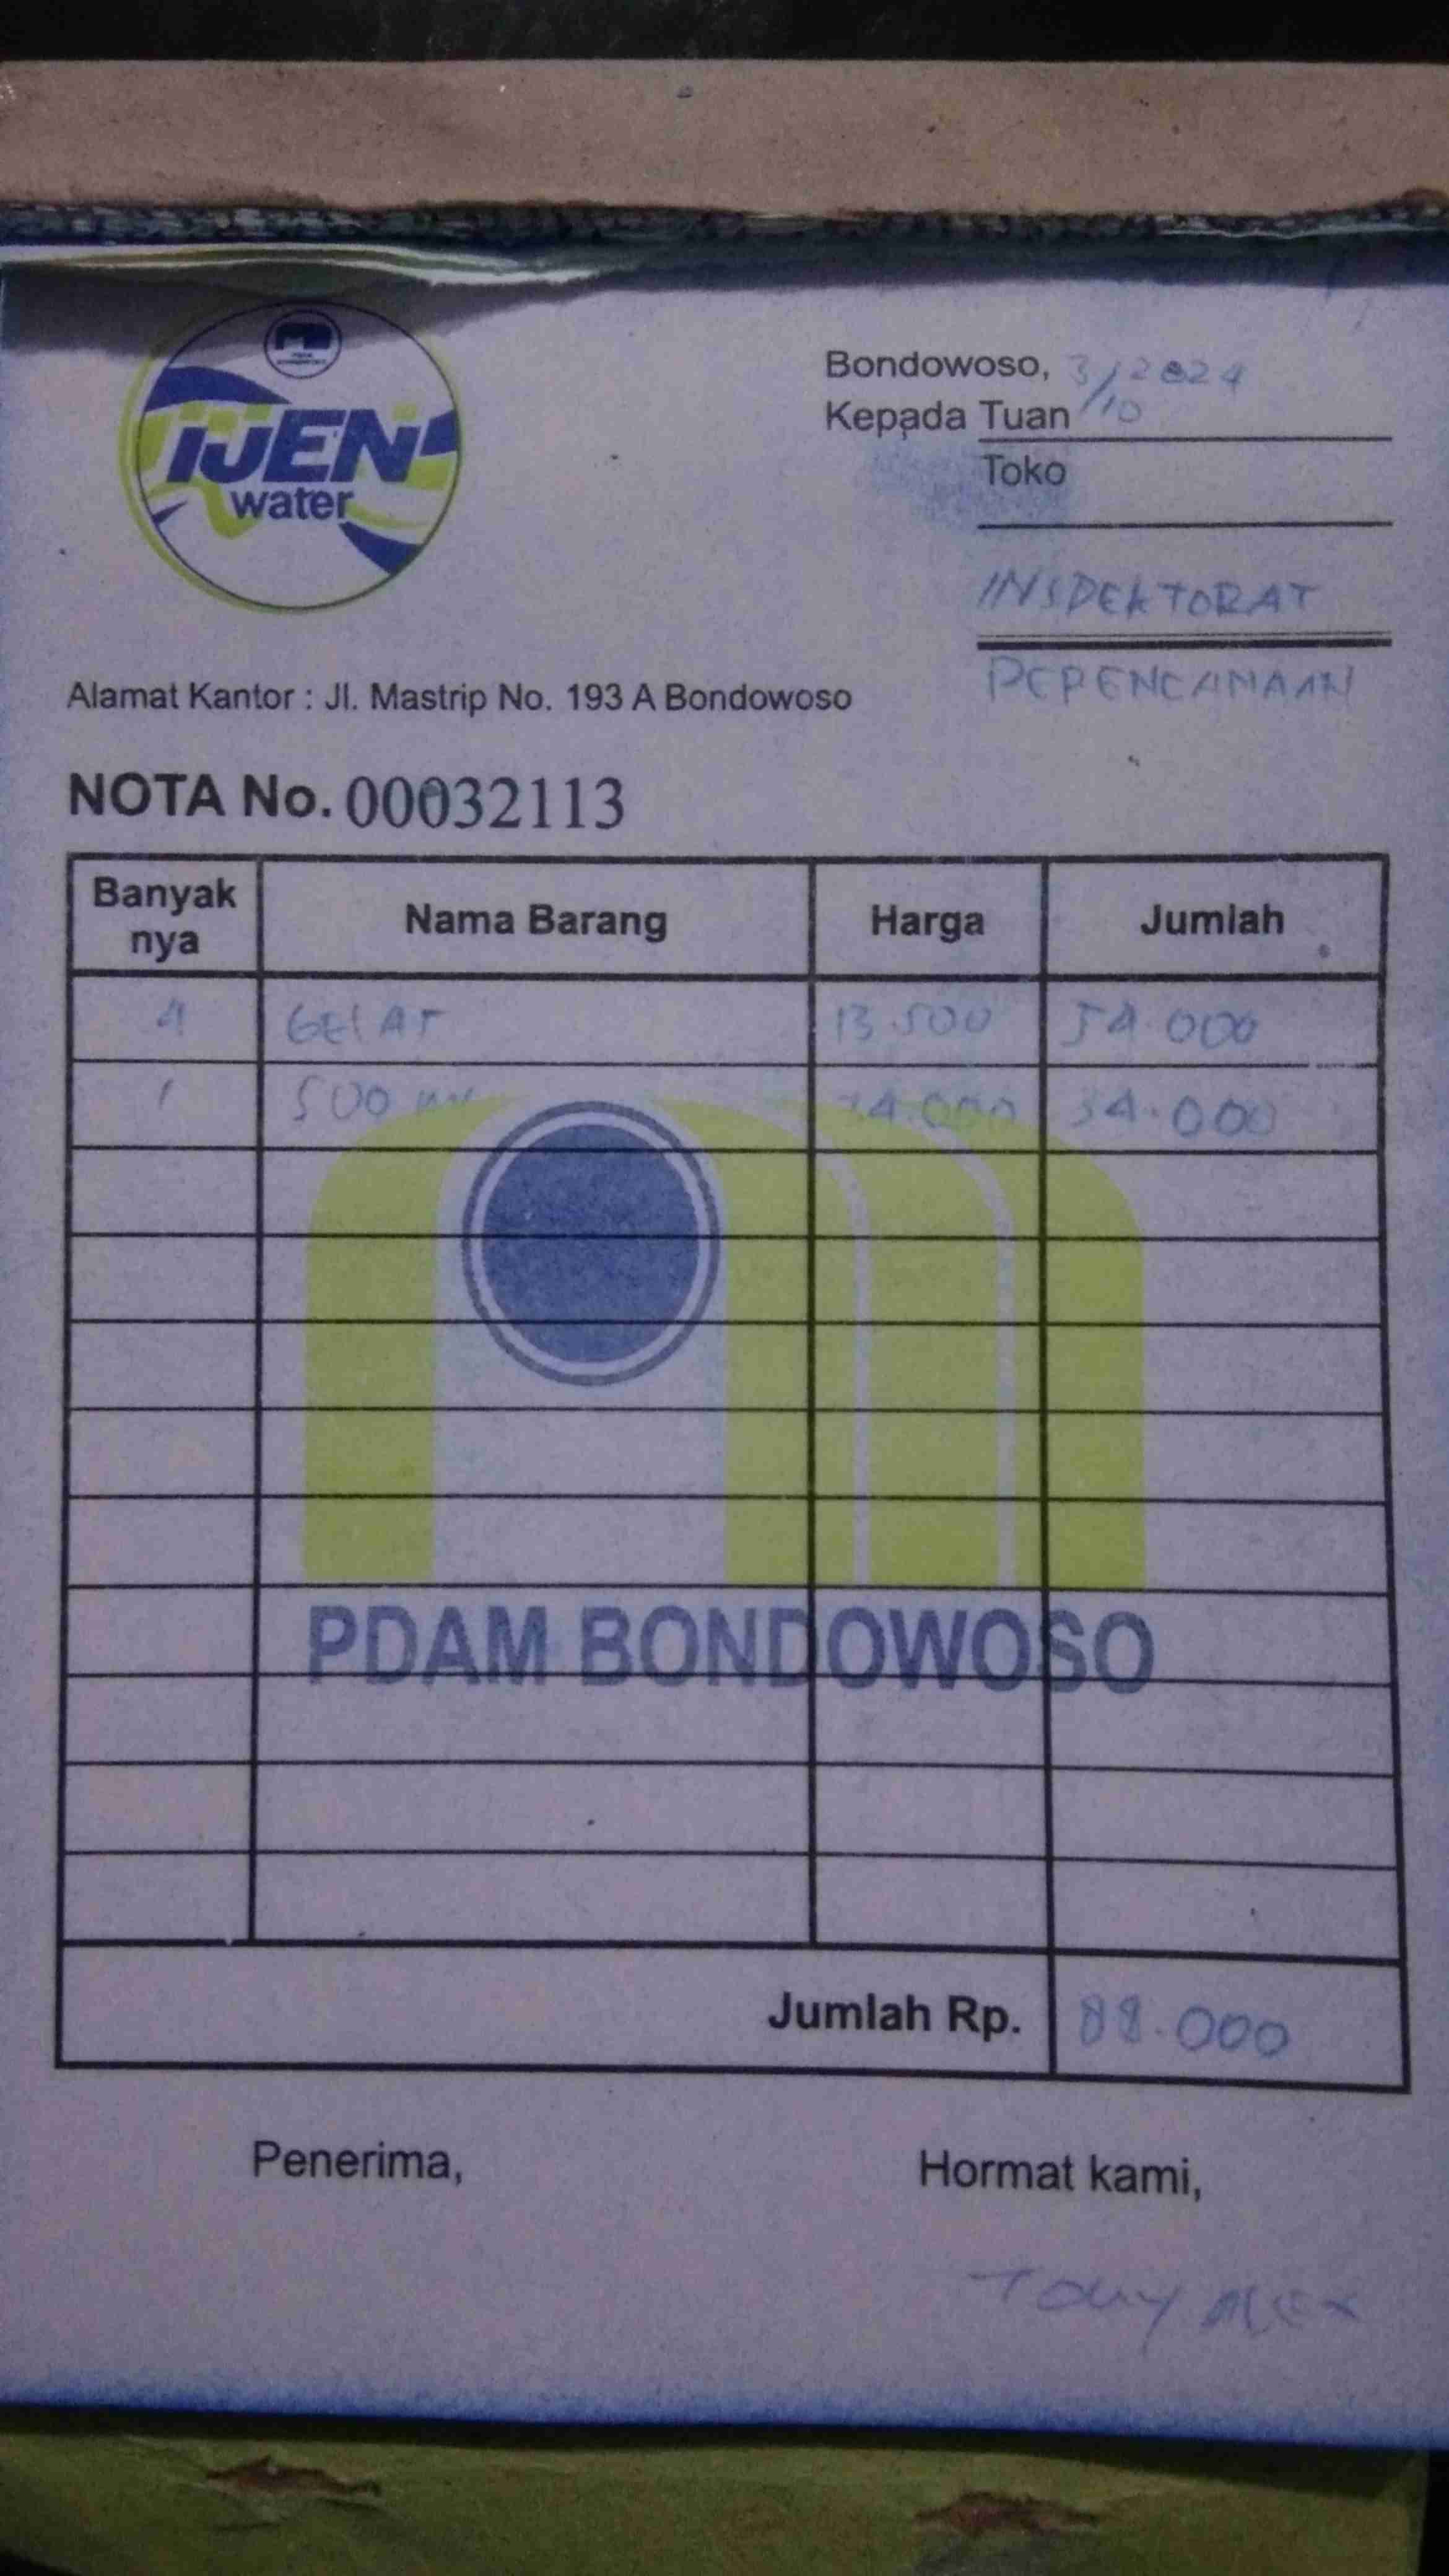 IJEN
water
Bondowoso, 3/10 2024
Kepada Tuan
Toko
INSPEKTORAT
PERENCANAAN
Alamat Kantor : Jl. Mastrip No. 193 A Bondowoso
NOTA No. 00032113
Banyak nya Nama Barang Harga Jumlah
4 GELAS 13.500 54.000
1 500 ml 34.000 34.000
PDAM BONDOWOSO
Jumlah Rp. 88.000
Penerima, Hormat kami,
Tony